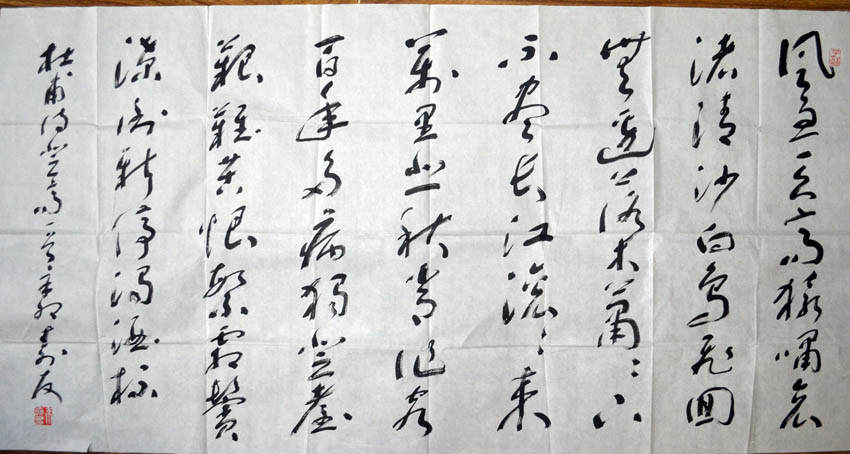 風急天高猿嘯哀
渚清沙白鳥飛回
無邊落木蕭〻下
不盡長江滚〻来
萬里悲秋常作客
百年多病獨登臺
艱難苦恨繁霜鬢
潦倒新停濁酒杯
杜甫詩登高一首辛卯壽友